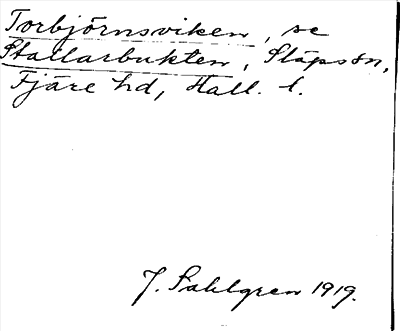 Torbjörnsviken, se
Stallarbukten, Släps sn,
Fjäre hd, Hall. l.
J. Sahlgren 1919.